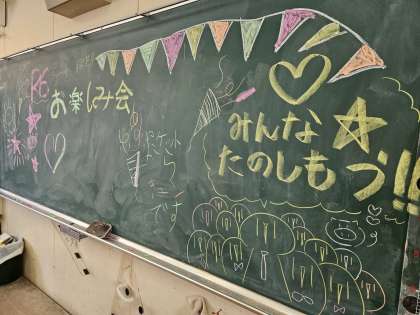 R6
お楽しみ会
みんな
たのしもう!!
です